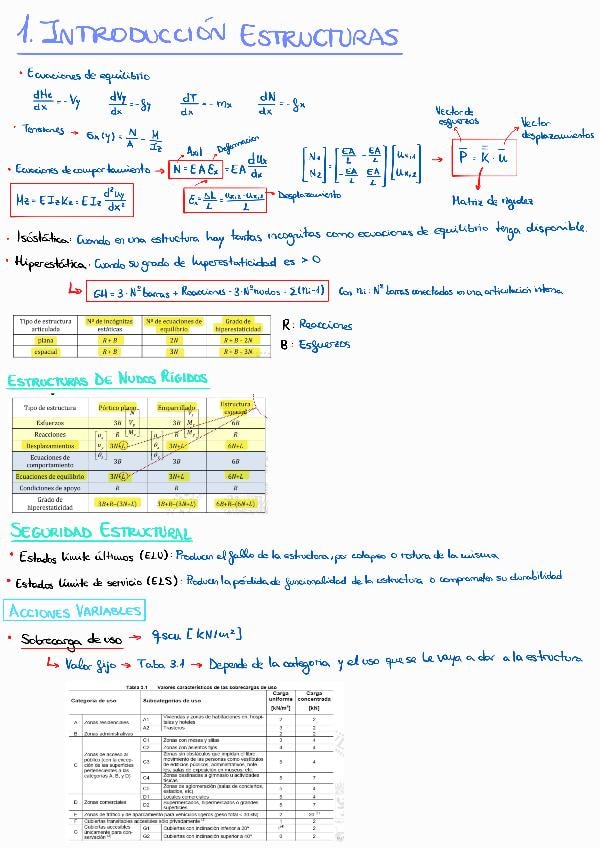 1. INTRODUCCIÓN ESTRUCTURAS
• Ecuaciones de equilibrio
dMz/dx = -Vy dVy/dx = -qy dT/dx = -mx dN/dx = -qx
• Tensiones → σx(y) = N/A - M/Iz
Axil Deformación
Vector de esfuerzos Vector desplazamientos
• Ecuaciones de comportamiento → N = E A Ex = E A dux/dx [N1 N2] = [EA/L -EA/L -EA/L EA/L] [ux,1 ux,2] → P = K · u
Mz = E Iz Kz = E Iz d²uy/dx² Ex = ΔL/L = ux,2 - ux,1/L → Desplazamiento Matriz de rigidez
• Isóstática: Cuando en una estructura hay tantas incognitas como ecuaciones de equilibrio tenga disponible.
• Hiperestática: Cuando su grado de hiperestaticidad es > 0
↳ GH = 3 · Nº barras + Reacciones - 3 · Nº nudos - Σ(ni-1) Con ni: Nº barras conectadas en una articulación interna
Tipo de estructura articulada Nº de incógnitas estáticas Nº de ecuaciones de equilibrio Grado de hiperestaticidad
plana R + B 2N R + B - 2N
espacial R + B 3N R + B - 3N
R: Reacciones
B: Esfuerzos
ESTRUCTURAS DE NUDOS RÍGIDOS
Tipo de estructura Pórtico plano Emparrillado Estructura espacial
Esfuerzos 3B 3B 6B
Reacciones R R R
Desplazamientos 3N+L 3N+L 6N+L
Ecuaciones de comportamiento 3B 3B 6B
Ecuaciones de equilibrio 3N+L 3N+L 6N+L
Condiciones de apoyo R R R
Grado de hiperestaticidad 3B+R-(3N+L) 3B+R-(3N+L) 6B+R-(6N+L)
SEGURIDAD ESTRUCTURAL
• Estados límite últimos (ELU): Producen el fallo de la estructura, por colapso o rotura de la misma
• Estados límite de servicio (ELS): Producen la pérdida de funcionalidad de la estructura o comprometen su durabilidad
ACCIONES VARIABLES
• Sobrecarga de uso → qscu [kN/m²]
↳ Valor fijo → Taba 3.1 → Depende de la categoria y el uso que se le vaya a dar a la estructura
Tabla 3.1 Valores característicos de las sobrecargas de uso
Categoría de uso Subcategorías de uso Carga uniforme [kN/m²] Carga concentrada [kN]
A Zonas residenciales A1 Viviendas y zonas de habitaciones en, hospitales y hoteles 2 2
A2 Trasteros 3 2
B Zonas administrativas 2 2
C Zonas de acceso al público (con la excepción de las superficies pertenecientes a las categorías A, B, y D) C1 Zonas con mesas y sillas 3 4
C2 Zonas con asientos fijos 4 4
C3 Zonas sin obstáculos que impidan el libre movimiento de las personas como vestíbulos de edificios públicos, administrativos, hoteles; salas de exposición en museos; etc. 5 4
C4 Zonas destinadas a gimnasio u actividades físicas 5 7
C5 Zonas de aglomeración (salas de conciertos, estadios, etc) 5 4
D Zonas comerciales D1 Locales comerciales 5 4
D2 Supermercados, hipermercados o grandes superficies 5 7
E Zonas de tráfico y de aparcamiento para vehículos ligeros (peso total < 30 kN) 2 20
F Cubiertas transitables accesibles sólo privadamente 1 2
G Cubiertas accesibles únicamente para conservación G1 Cubiertas con inclinación inferior a 20° 1 2
G2 Cubiertas con inclinación superior a 40° 0 2